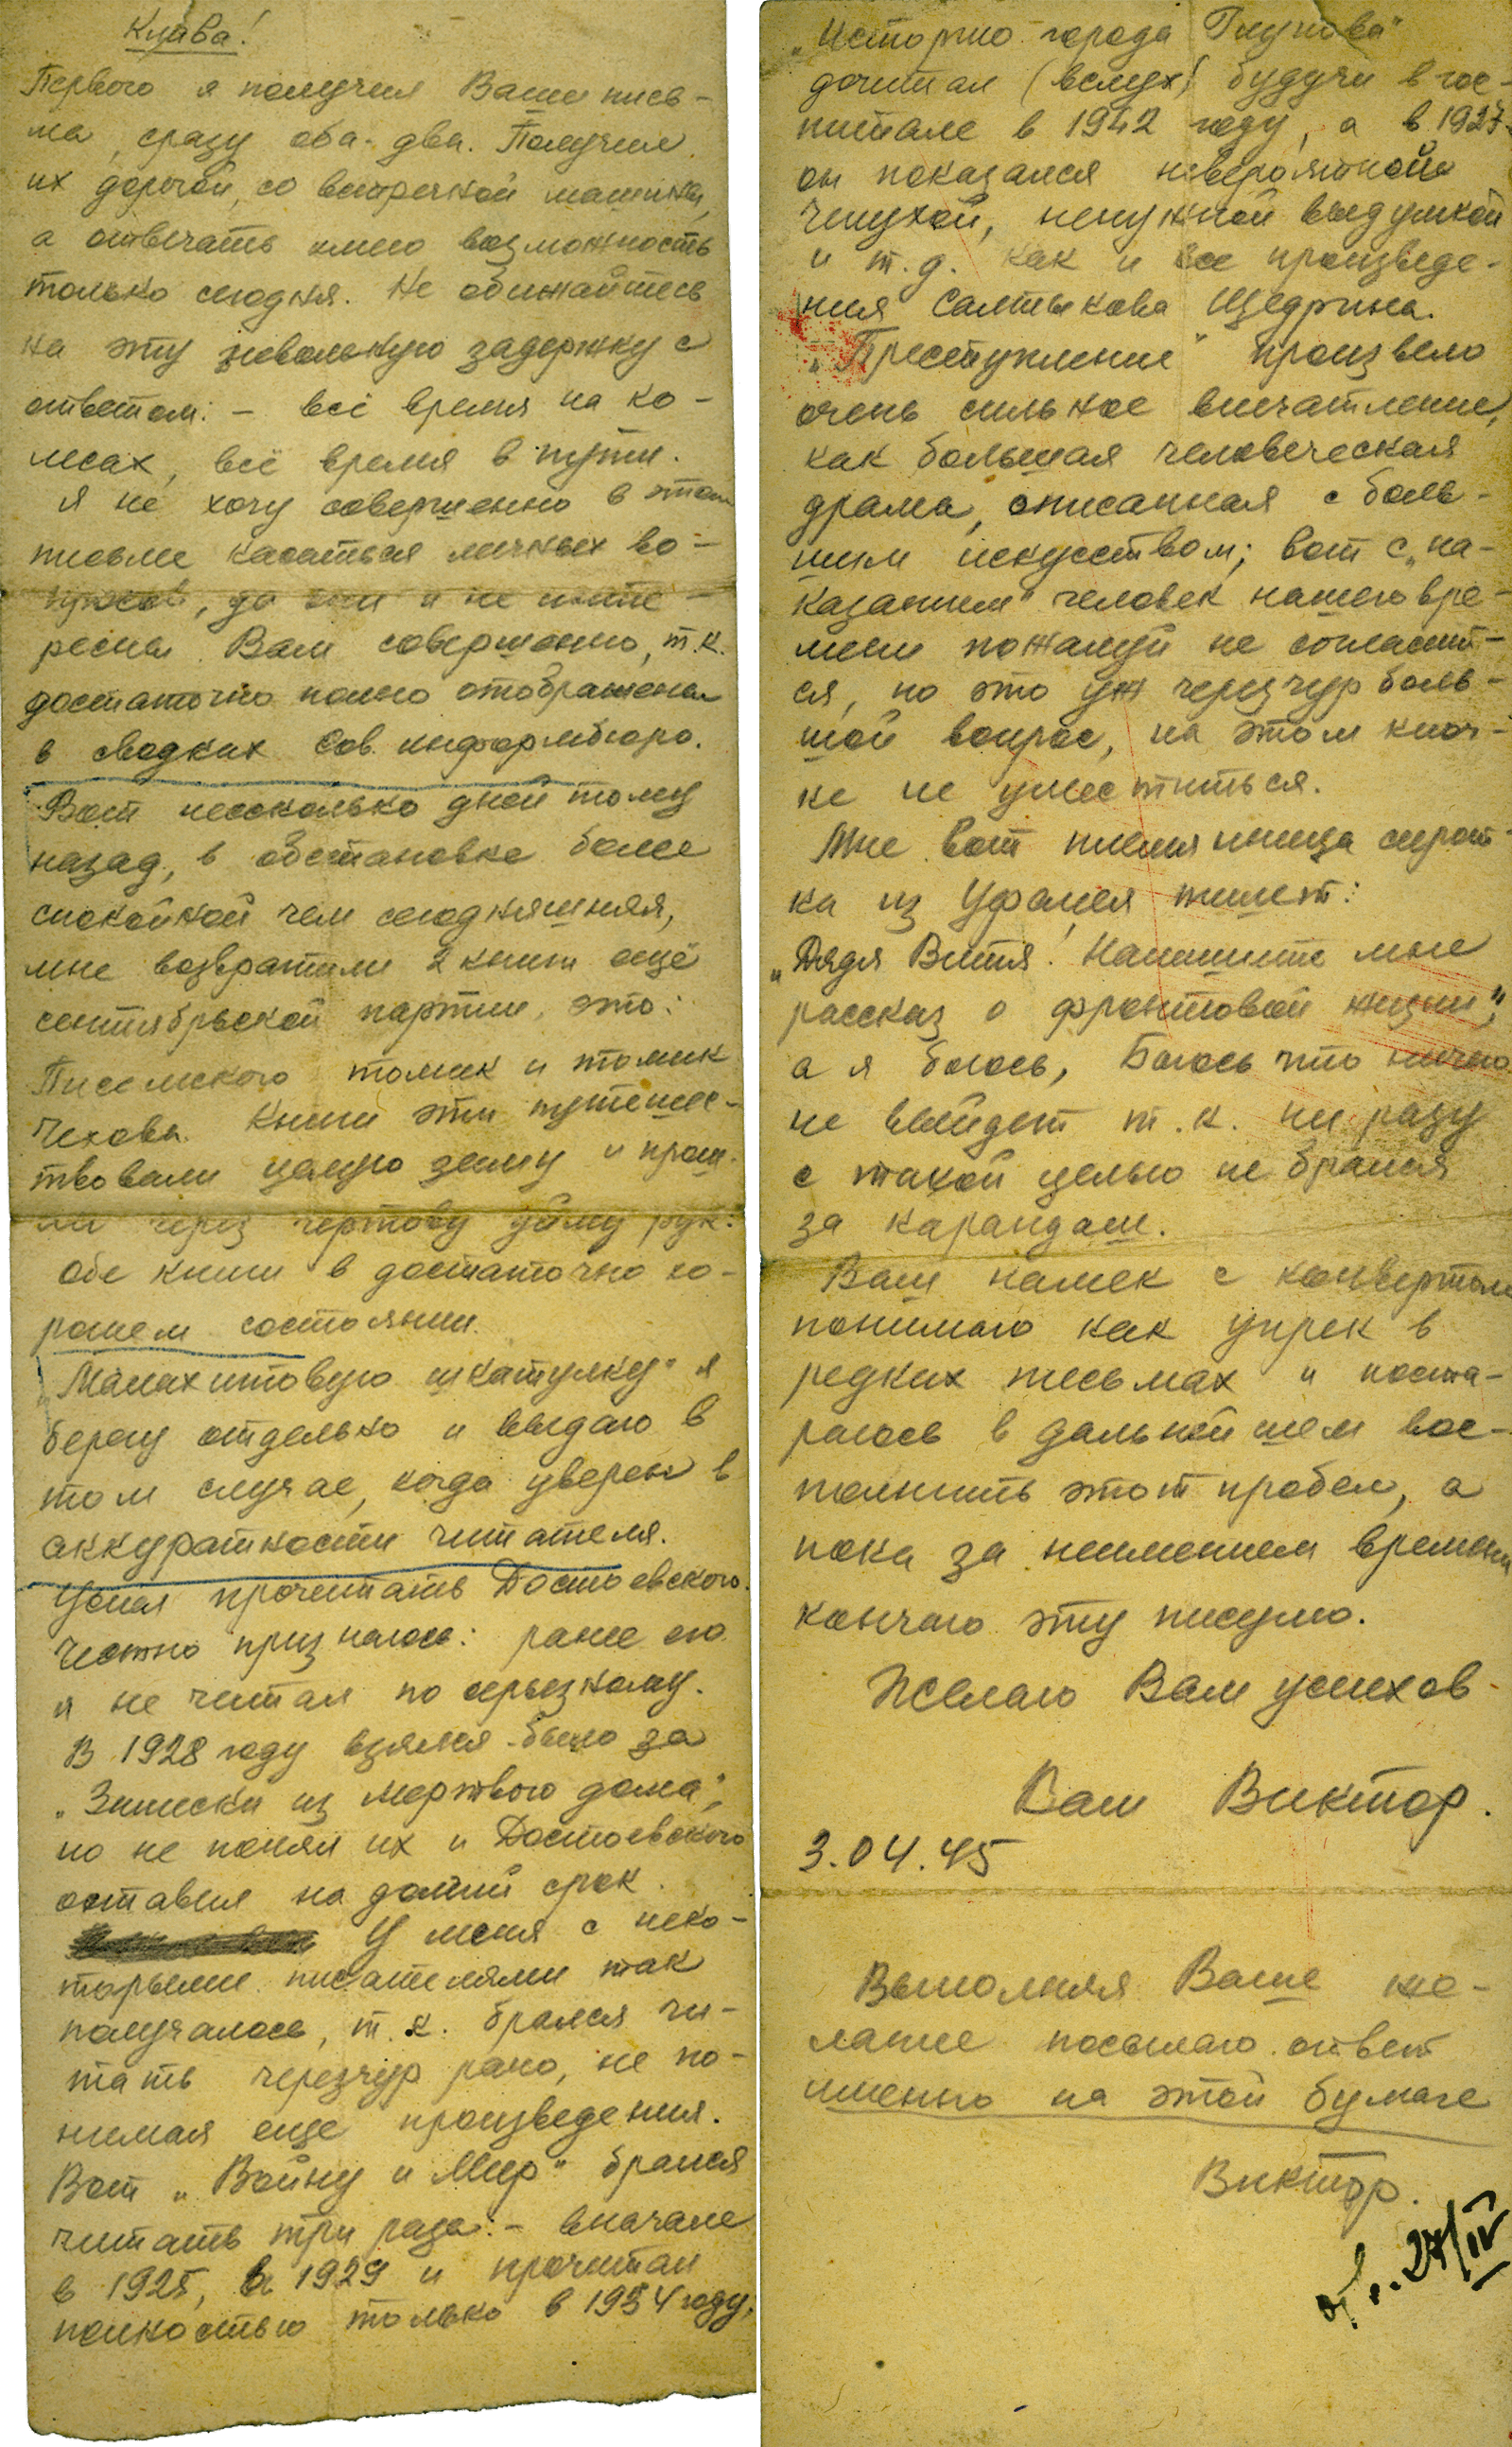 Клава!
Первого я получил Ваши пись-
ма, сразу оба-два. Получил
их дорогой, со встречной машины,
а отвечать имею возможность
только сегодня. Не обижайтесь
на эту невольную задержку с
ответом: – всё время на ко-
лесах, всё время в пути.
Я не хочу совершенно в этом
письме касаться личных во-
просов, да они и не инте-
ресны Вам совершенно, т.к.
достаточно полно отображены
в сводках Сов. информбюро.
Вот несколько дней тому
назад, в обстановке более
спокойной чем сегодняшняя,
мне возвратили 2 книги ещё
сентябрьской партии, это:
Писемского томик и томик
Чехова. Книги эти путешес-
твовали целую зиму и прош-
ли через чертову уйму рук.
Обе книги в достаточно хо-
рошем состоянии.
„Малахитовую шкатулку" я
берегу отдельно и выдаю в
том случае, когда уверен в
аккуратности читателя.
Успел прочитать Достоевского.
Честно признаюсь: ранее его
я не читал по серьезному.
В 1928 году взялся-было за
„Записки из мертвого дома",
но не понял их и Достоевского
оставил на долгий срок.
У меня с неко-
торыми писателями так
получалось, т.к. брался чи-
тать черезчур рано, не по-
нимая еще произведения.
Вот „Войну и Мир" брался
читать три раза: – вначале
в 1925, в 1929 и прочитал
полностью только в 1934 году,
„Историю города Глупова"
дочитал (вслух) будучи в гос-
питале в 1942 году, а в 1927-
он показался невероятной
чепухой, ненужной выдумкой
и т.д. как и все произведе-
ния Салтыкова Щедрина.
„Преступление" произвело
очень сильное впечатление,
как большая человеческая
драма, описанная с боль-
шим искусством; вот с „на-
казанием" человек нашего вре-
мени пожалуй не согласит-
ся, но это уж черезчур боль-
шой вопрос, на этом клоч-
ке не уместиться.
Мне вот племянница сирот-
ка из Уфалея пишет:
„Дядя Витя! Напишите мне
рассказ о фронтовой жизни",
а я боюсь, Боюсь что ничего
не выйдет т.к. ни разу
с такой целью не брался
за карандаш.
Ваш намек с конвертом
понимаю как упрек в
редких письмах и поста-
раюсь в дальнейшем вос-
полнить этот пробел, а
пока за неимением времени
кончаю эту писулю.
Желаю Вам успехов.
Ваш Виктор.
3.04.45
Выполняя Ваше же-
лание посылаю ответ
именно на этой бумаге
Виктор.
27/IV